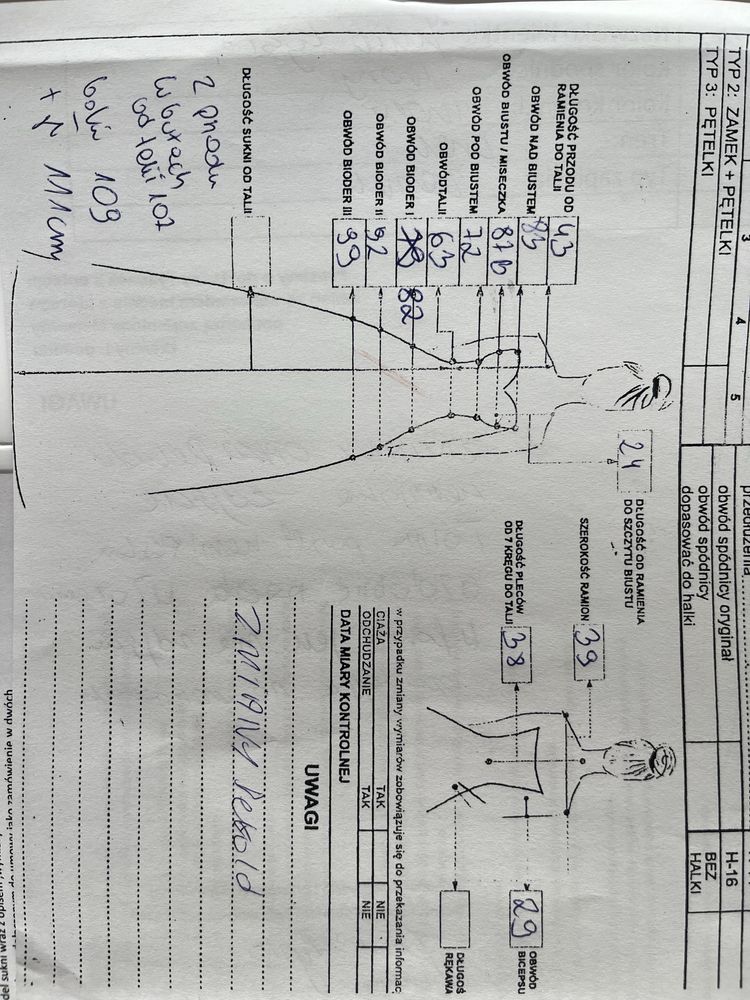 3 4 5
TYP 2: ZAMEK + PĘTELKI
TYP 3: PĘTELKI
obwód spódnicy oryginał
obwód spódnicy
dopasować do halki
H-16
BEZ
HALKI
DŁUGOŚĆ PRZODU OD
RAMIENIA DO TALII
43
OBWÓD NAD BIUSTEM
83
OBWÓD BIUSTU / MISECZKA
87B
OBWÓD POD BIUSTEM
72
OBWÓD TALII
63
OBWÓD BIODER I
82
OBWÓD BIODER II
92
OBWÓD BIODER III
99
DŁUGOŚĆ SUKNI OD TALII
z przodu
w butach
od talii 107
109
111cm
24
DŁUGOŚĆ OD RAMIENIA
DO SZCZYTU BIUSTU
SZEROKOŚĆ RAMION
39
DŁUGOŚĆ PLECÓW
OD 7 KRĘGU DO TALII
38
29
OBWÓD
BICEPSU
DŁUGOŚ
RĘKAWA
w przypadku zmiany wymiarów zobowiązuje się do przekazania informac
CIĄŻA TAK NIE
ODCHUDZANIE TAK NIE
DATA MIARY KONTROLNEJ
UWAGI
ZMIANY